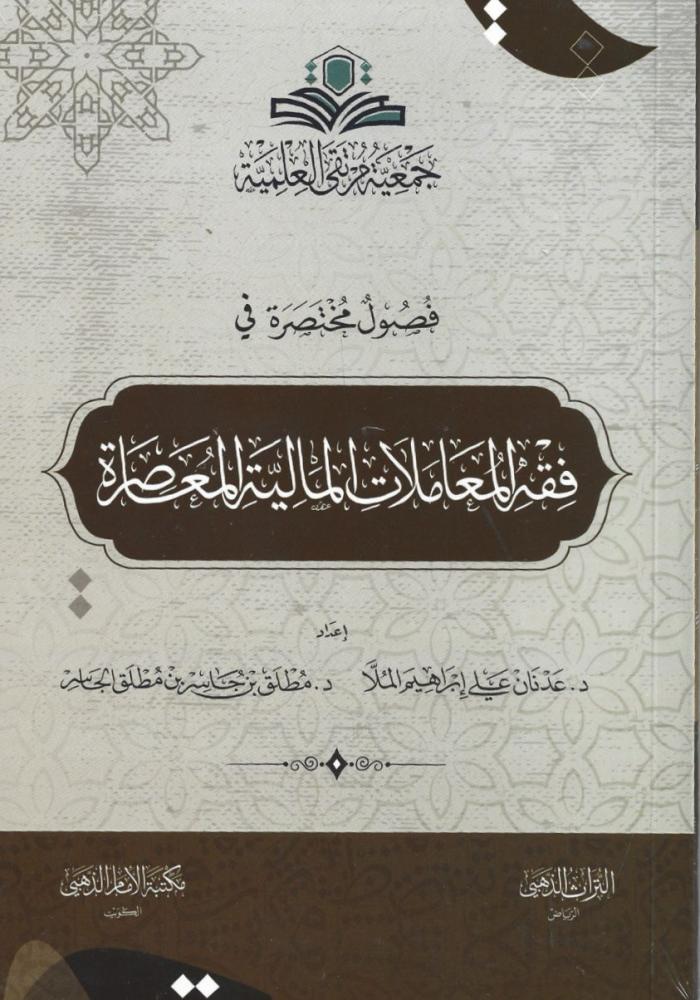 جَمْعِيَّة مُرْتَقَى العِلْمِيَّة
فُصُولٌ مُخْتَصَرَة في
فِقْهِ المُعَامَلَاتِ المَالِيَّةِ المُعَاصِرَة
إعداد
د. عَدْنَان عَلي إِبْرَاهِيم المُلَّا د. مُطْلَق بْن جَاسِر بْن مُطْلَق الجَاسِر
التراث الذهبي مكتبة الإمام الذهبي
الرياض الكويت